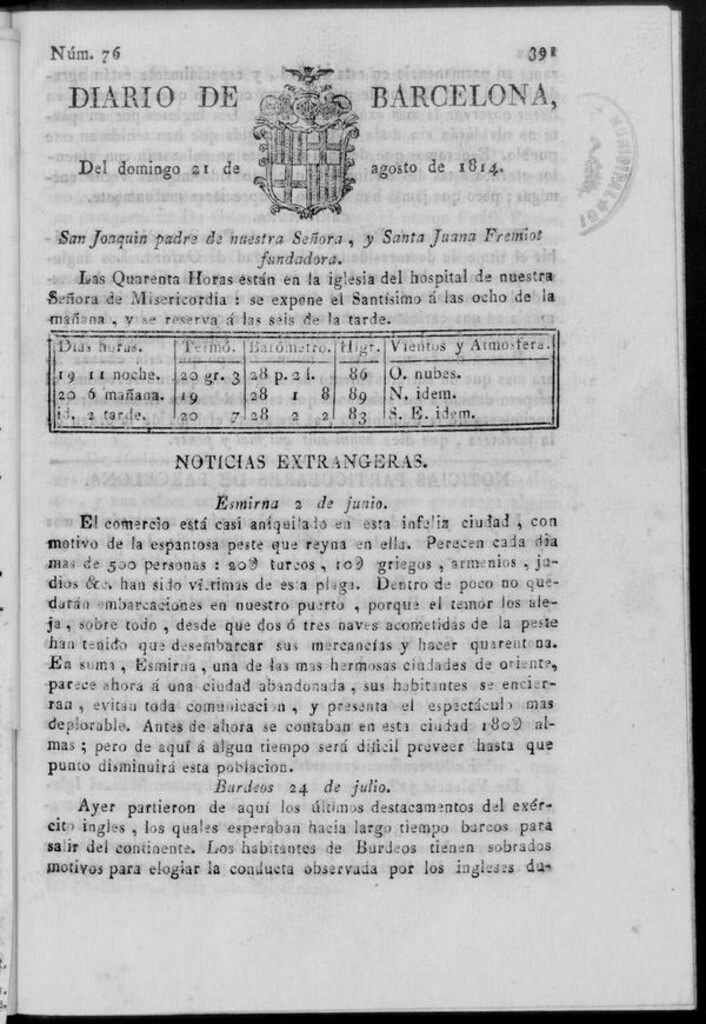 Núm. 76 391
DIARIO DE BARCELONA,
Del domingo 21 de agosto de 1814.
San Joaquin padre de nuestra Señora, y Santa Juana Fremiot
fundadora.
Las Quarenta Horas están en la iglesia del hospital de nuestra
Señora de Misericordia : se expone el Santísimo á las ocho de la
mañana , y se reserva á las seis de la tarde.
Dias horas. Termó. Barómetro. Higr. Vientos y Atmosfera.
19 11 noche. 20 gr. 3 28 p. 2 l. 86 O. nubes.
20 6 mañana. 19 28 1 8 89 N. idem.
id. 2 tarde. 20 7 28 2 2 83 S. E. idem.
NOTICIAS EXTRANGERAS.
Esmirna 2 de junio.
El comercio está casi aniquilado en esta infeliz ciudad , con
motivo de la espantosa peste que reyna en ella. Perecen cada dia
mas de 500 personas : 20Ꝺ turcos , 10Ꝺ griegos , armenios , ju-
dios &c. han sido víctimas de esta plaga. Dentro de poco no que-
darán embarcaciones en nuestro puerto , porque el temor los ale-
ja , sobre todo , desde que dos ó tres naves acometidas de la peste
han tenido que desembarcar sus mercancías y hacer quarentena.
En suma , Esmirna , una de las mas hermosas ciudades de oriente,
parece ahora á una ciudad abandonada , sus habitantes se encier-
ran , evitan toda comunicacion , y presenta el espectáculo mas
deplorable. Antes de ahora se contaban en esta ciudad 180Ꝺ al-
mas ; pero de aquí á algun tiempo será dificil preveer hasta que
punto disminuirá esta poblacion.
Burdeos 24 de julio.
Ayer partieron de aquí los últimos destacamentos del exér-
cito ingles , los quales esperaban hacia largo tiempo barcos para
salir del continente. Los habitantes de Burdeos tienen sobrados
motivos para elogiar la conducta observada por los ingleses du-